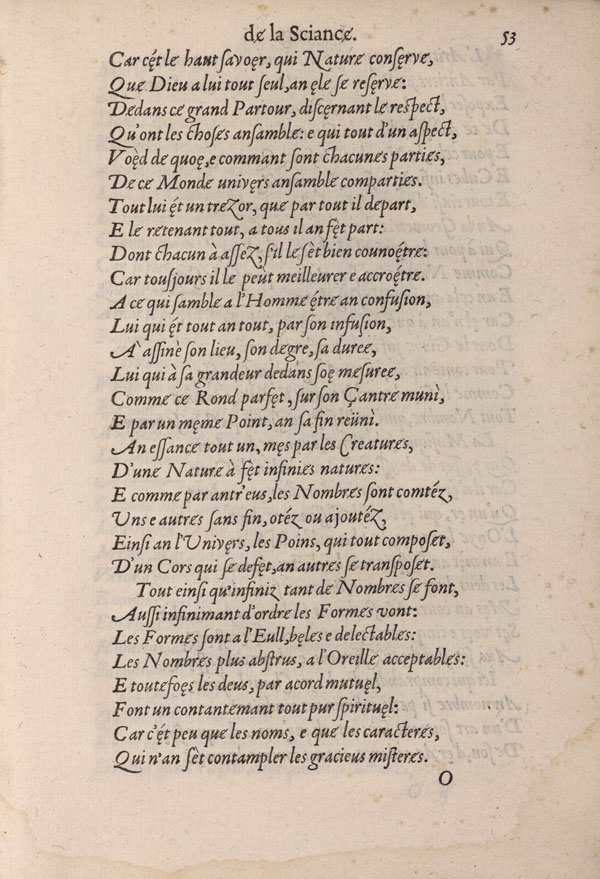 de la Sciancę. 53
Car cę́t le haut savoęr, qui Nature consęrve,
Que Dieu a lui tout seul, an ęle se resęrve:
Dedans ce grand Partour, discęrnant le respęct,
Qu'ont les choses ansamble: e qui tout d'un aspęct,
Voęd de quoę, e commant sont chacunes parties,
De ce Monde univęrs ansamble comparties.
Tout lui ę́t un trezor, que par tout il depart,
E le retenant tout, a tous il an fę̀t part:
Dont chacun à assez, s'il le sę̀t bien counoę́tre:
Car tousjours il le peùt meilleurer e accroę́tre.
A ce qui samble a l'Homme ę́tre an confusion,
Lui qui ę́t tout an tout, par son infusion,
A' assinè son lieu, son degre, sa duree,
Lui qui à sa grandeur dedans soę mesuree,
Comme ce Rond parfęt, sur son Çantre munì,
E par un męme Point, an sa fin reünì.
An essance tout un, męs par les Creatures,
D'une Nature à fęt infinies natures:
E comme par antr'eus, les Nombres sont comtéz,
Uns e autres sans fin, otéz ou ajoutéz,
Einsi an l'Univęrs, les Poins, qui tout composet,
D'un Cors qui se defęt, an autres se transposet.
Tout einsi qu'infiniz tant de Nombres se font,
Aussi infinimant d'ordre les Formes vont:
Les Formes sont a l'Eulh, bęles e delectables:
Les Nombres plus abstrus, a l'Oreille acceptables:
E toutefoęs les deus, par acord mutuęl,
Font un contantemant tout pur spirituęl:
Car c'ę́t peu que les noms, e que les caracteres,
Qui n'an sę̀t contampler les gracieus misteres.
O